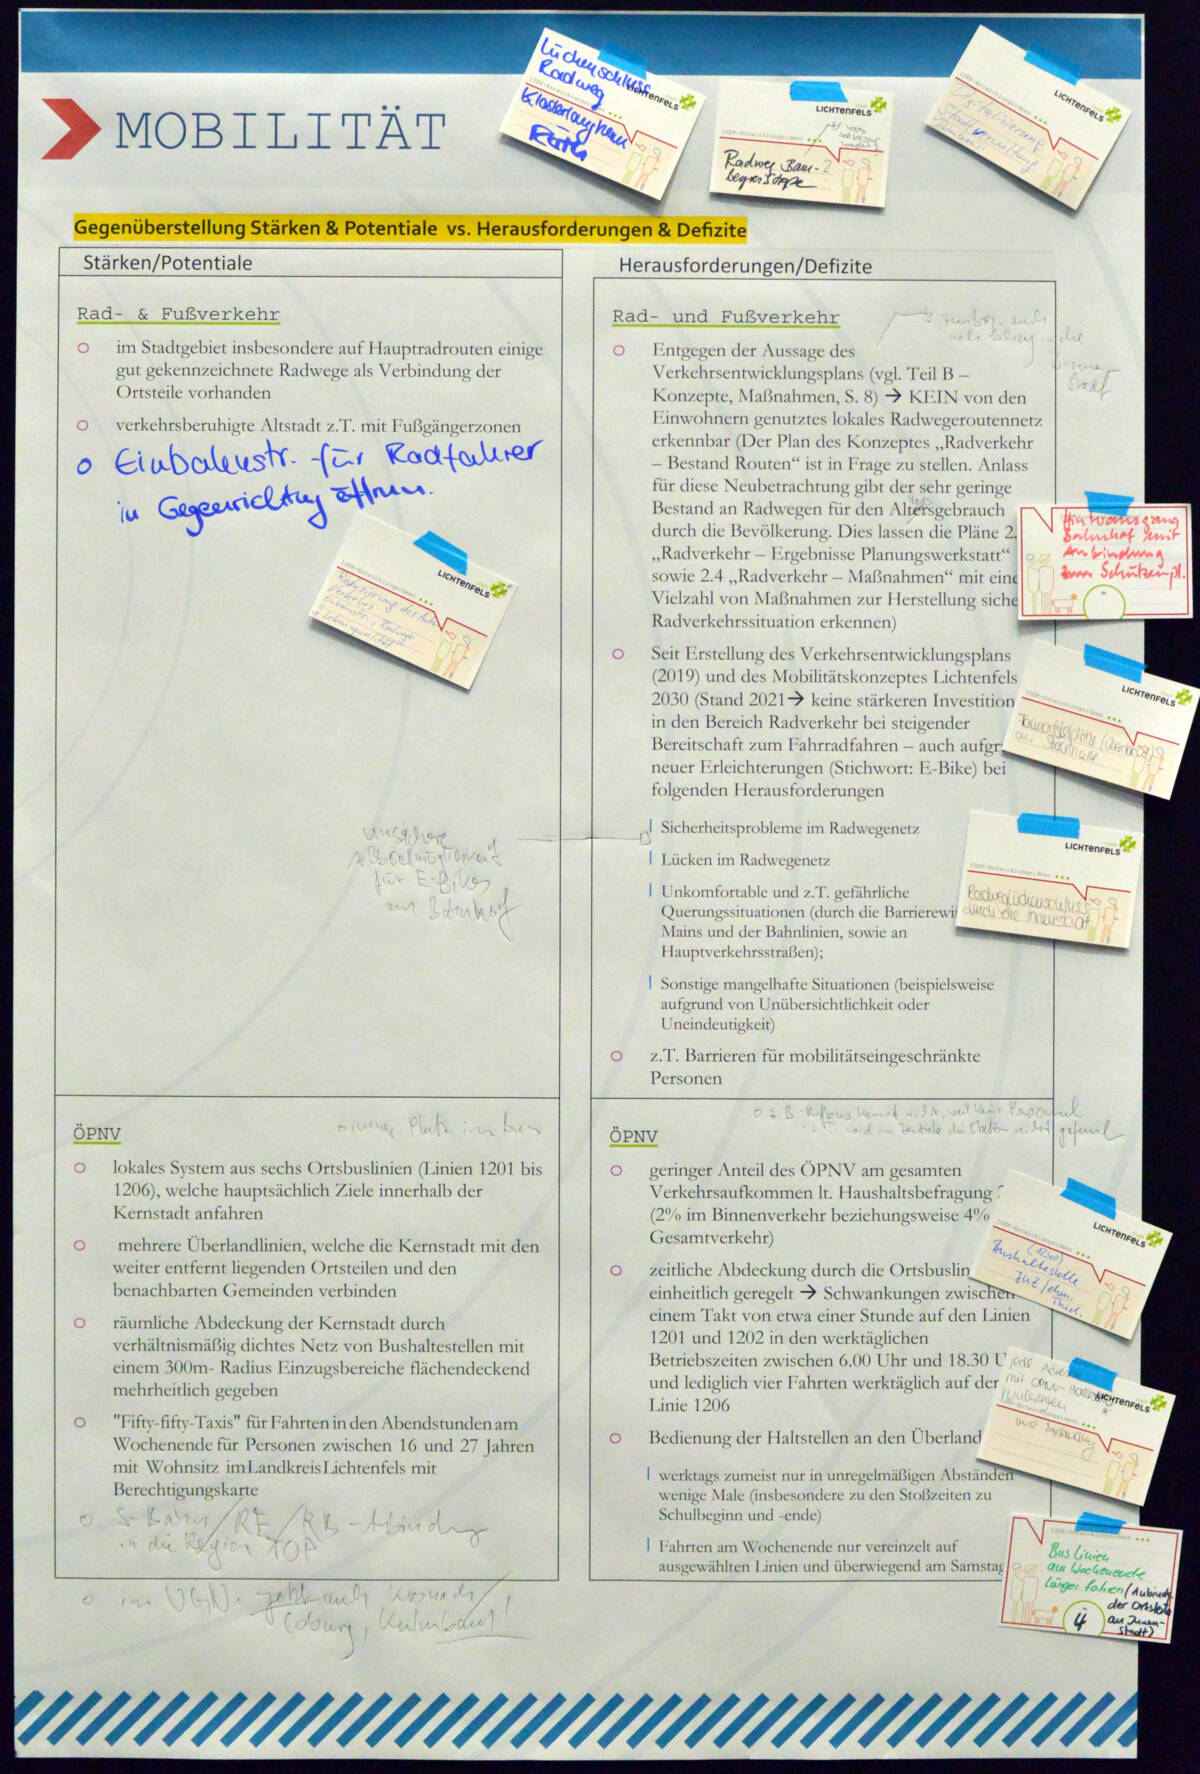 MOBILITÄT
Lückenschluss
Radweg
Klosterlangheim
LICHTENFELS
LICHTENFELS
ISEK-Entwicklungsideen
Radweg Bam-
LICHTENFELS
Digitalisierung
Gegenüberstellung Stärken & Potentiale vs. Herausforderungen & Defizite
Stärken/Potentiale
Rad- & Fußverkehr
im Stadtgebiet insbesondere auf Hauptradrouten einige
gut gekennzeichnete Radwege als Verbindung der
Ortsteile vorhanden
verkehrsberuhigte Altstadt z.T. mit Fußgängerzonen
Einbahnstr. für Radfahrer
in Gegenrichtung öffnen.
ISEK-Entwicklungsideen
LICHTENFELS
unsichere
Abstellmöglichkeit
für E-Bikes
am Bahnhof
Herausforderungen/Defizite
Rad- und Fußverkehr
Entgegen der Aussage des
Verkehrsentwicklungsplans (vgl. Teil B –
Konzepte, Maßnahmen, S. 8) → KEIN von den
Einwohnern genutztes lokales Radwegeroutennetz
erkennbar (Der Plan des Konzeptes „Radverkehr
– Bestand Routen“ ist in Frage zu stellen. Anlass
für diese Neubetrachtung gibt der sehr geringe
Bestand an Radwegen für den Altersgebrauch
durch die Bevölkerung. Dies lassen die Pläne 2.
„Radverkehr – Ergebnisse Planungswerkstatt“
sowie 2.4 „Radverkehr – Maßnahmen“ mit eine
Vielzahl von Maßnahmen zur Herstellung siche
Radverkehrssituation erkennen)
Seit Erstellung des Verkehrsentwicklungsplans
(2019) und des Mobilitätskonzeptes Lichtenfels
2030 (Stand 2021→ keine stärkeren Investition
in den Bereich Radverkehr bei steigender
Bereitschaft zum Fahrradfahren – auch aufgr
neuer Erleichterungen (Stichwort: E-Bike) bei
folgenden Herausforderungen
Sicherheitsprobleme im Radwegenetz
Lücken im Radwegenetz
Unkomfortable und z.T. gefährliche
Querungssituationen (durch die Barrierewi
Mains und der Bahnlinien, sowie an
Hauptverkehrsstraßen);
Sonstige mangelhafte Situationen (beispielsweise
aufgrund von Unübersichtlichkeit oder
Uneindeutigkeit)
z.T. Barrieren für mobilitätseingeschränkte
Personen
Hintausgang
Bahnhof mit
Anbindung
zum Schützenpl.
LICHTENFELS
ISEK-Entwicklungsideen
LICHTENFELS
ISEK-Entwicklungsideen
Radweglückenschluss
durch die Innenstadt
ÖPNV
lokales System aus sechs Ortsbuslinien (Linien 1201 bis
1206), welche hauptsächlich Ziele innerhalb der
Kernstadt anfahren
mehrere Überlandlinien, welche die Kernstadt mit den
weiter entfernt liegenden Ortsteilen und den
benachbarten Gemeinden verbinden
räumliche Abdeckung der Kernstadt durch
verhältnismäßig dichtes Netz von Bushaltestellen mit
einem 300m- Radius Einzugsbereiche flächendeckend
mehrheitlich gegeben
"Fifty-fifty-Taxis" für Fahrten in den Abendstunden am
Wochenende für Personen zwischen 16 und 27 Jahren
mit Wohnsitz im Landkreis Lichtenfels mit
Berechtigungskarte
S-Bahn/RE/RB-Anbindung
in die Region TOP
im VGN. jetzt auch Kronach/
Coburg, Kulmbach!
ÖPNV
geringer Anteil des ÖPNV am gesamten
Verkehrsaufkommen lt. Haushaltsbefragung
(2% im Binnenverkehr beziehungsweise 4%
Gesamtverkehr)
zeitliche Abdeckung durch die Ortsbuslin
einheitlich geregelt → Schwankungen zwischen
einem Takt von etwa einer Stunde auf den Linien
1201 und 1202 in den werktäglichen
Betriebszeiten zwischen 6.00 Uhr und 18.30 U
und lediglich vier Fahrten werktäglich auf der
Linie 1206
Bedienung der Haltstellen an den Überland
werktags zumeist nur in unregelmäßigen Abständen
wenige Male (insbesondere zu den Stoßzeiten zu
Schulbeginn und -ende)
Fahrten am Wochenende nur vereinzelt auf
ausgewählten Linien und überwiegend am Samstag
LICHTENFELS
Bushaltestelle
LICHTENFELS
ISEK-Entwicklungsideen
Bus Linien
am Wochenende
länger fahren (Anbind.
der Ortsteile
an Innen-
stadt)